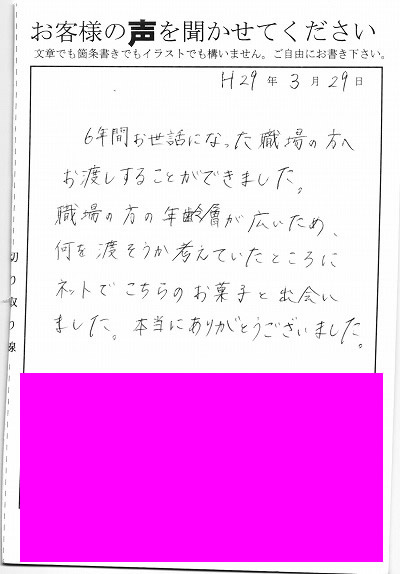 お客様の声を聞かせてください
文章でも箇条書きでもイラストでも構いません。ご自由にお書き下さい。
H29年3月29日
6年間お世話になった職場の方へ
お渡しすることができました。
職場の方の年齢層が広いため、
何を渡そうか考えていたところに
ネットでこちらのお菓子と出会い
ました。本当にありがとうございました。
切り取り線